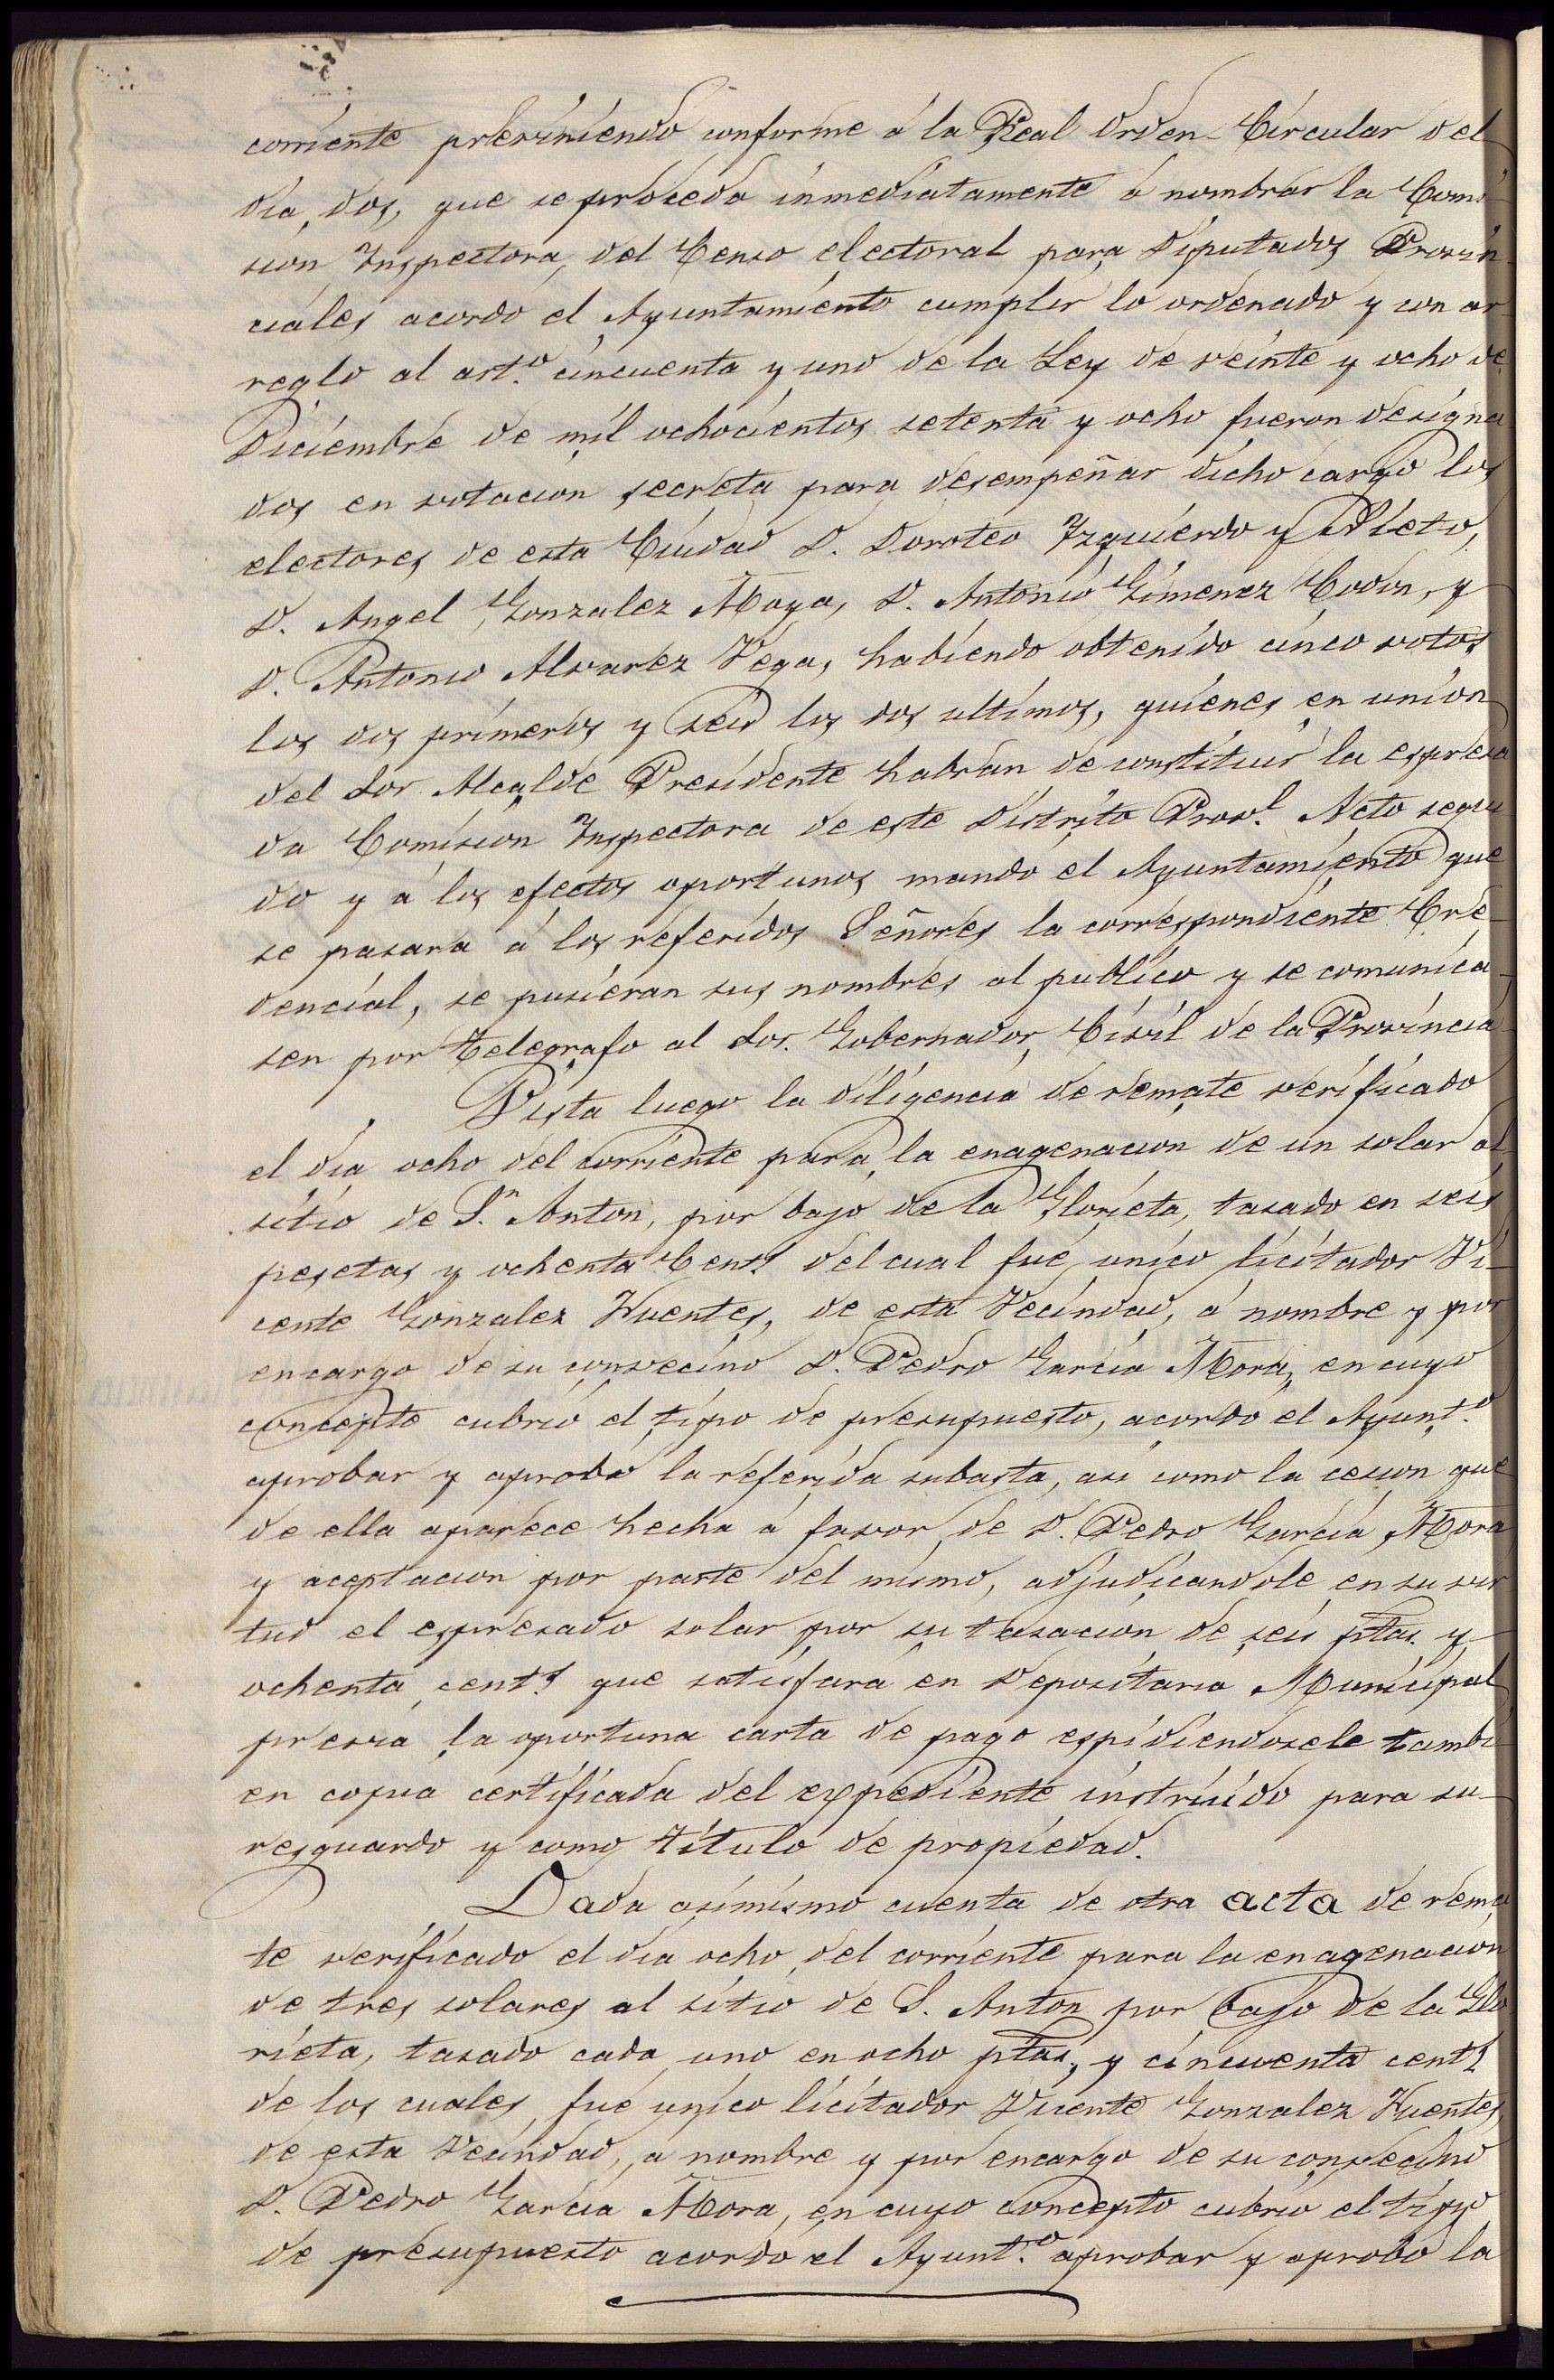 corriente previniendo conforme á la Real Orden Circular del
dia dos, que se proceda inmediatamente á nombrar la Comi
sion Inspectora del Censo electoral para Diputados Provin
ciales acordó el Ayuntamiento cumplir lo ordenado y con ar-
reglo al art.º cincuenta y uno de la Ley de veinte y ocho de
Diciembre de mil ochocientos setenta y ocho fueron designa
dos en votacion secreta para desempeñar dicho cargo los
electores de esta Ciudad D. Doroteo Izquierdo y Nieto,
D. Angel Gonzalez Moya, D. Antonio Gimenez Codon, y
D. Antonio Alvarez Vega, habiendo obtenido cinco votos
los dos primeros y seis los dos ultimos, quienes en union
del Sor Alcalde Presidente habrán de constituir la espresa
da Comision Inspectora de este Distrito Prov.l Acto segui
do y á los efectos oportunos mandó el Ayuntamiento que
se pasara á los referidos Señores la correspondiente Cre-
dencial, se pusieran sus nombres al publico y se comunica-
sen por telegrafo al Sor. Gobernador Civil de la Provincia
Vista luego la diligencia de remate verificado
el dia ocho del corriente para la enagenacion de un solar al
sitio de S.n Anton, por bajo de la Glorieta, tasado en seis
pesetas y ochenta Cent.s del cual fué unico licitador Vi-
cente Gonzalez Huentes, de esta Vecindad, á nombre y por
encargo de su convecino D. Pedro Garcia Mora, en cuyo
concepto cubrió el tipo de presupuesto, acordó el Ayunt.º
aprobar y aprobó la referida subasta, asi como la cesion que
de ella aparece hecha á favor de D. Pedro Garcia Mora
y aceptacion por parte del mismo, adjudicandole en su vir
tud el espresado solar por su tasacion de seis ptas. y
ochenta cent.s que satisfará en Depositaria Municipal
previa la oportuna carta de pago espidiendosele tambi
en copia certificada del expediente instruido para su
resguardo y como título de propiedad.
Dada asimismo cuenta de otra acta de rema
te verificado el dia ocho del corriente para la enagenacion
de tres solares al sitio de S. Anton por bajo de la Glo
rieta, tasado cada uno en ocho ptas, y cincuenta cent.s
de los cuales fué unico licitador Vicente Gonzalez Huentes,
de esta Vecindad, a nombre y por encargo de su convecino
D. Pedro Garcia Mora, en cuyo concepto cubrió el tipo
de presupuesto acordó el Ayunt.º aprobar y aprobó la